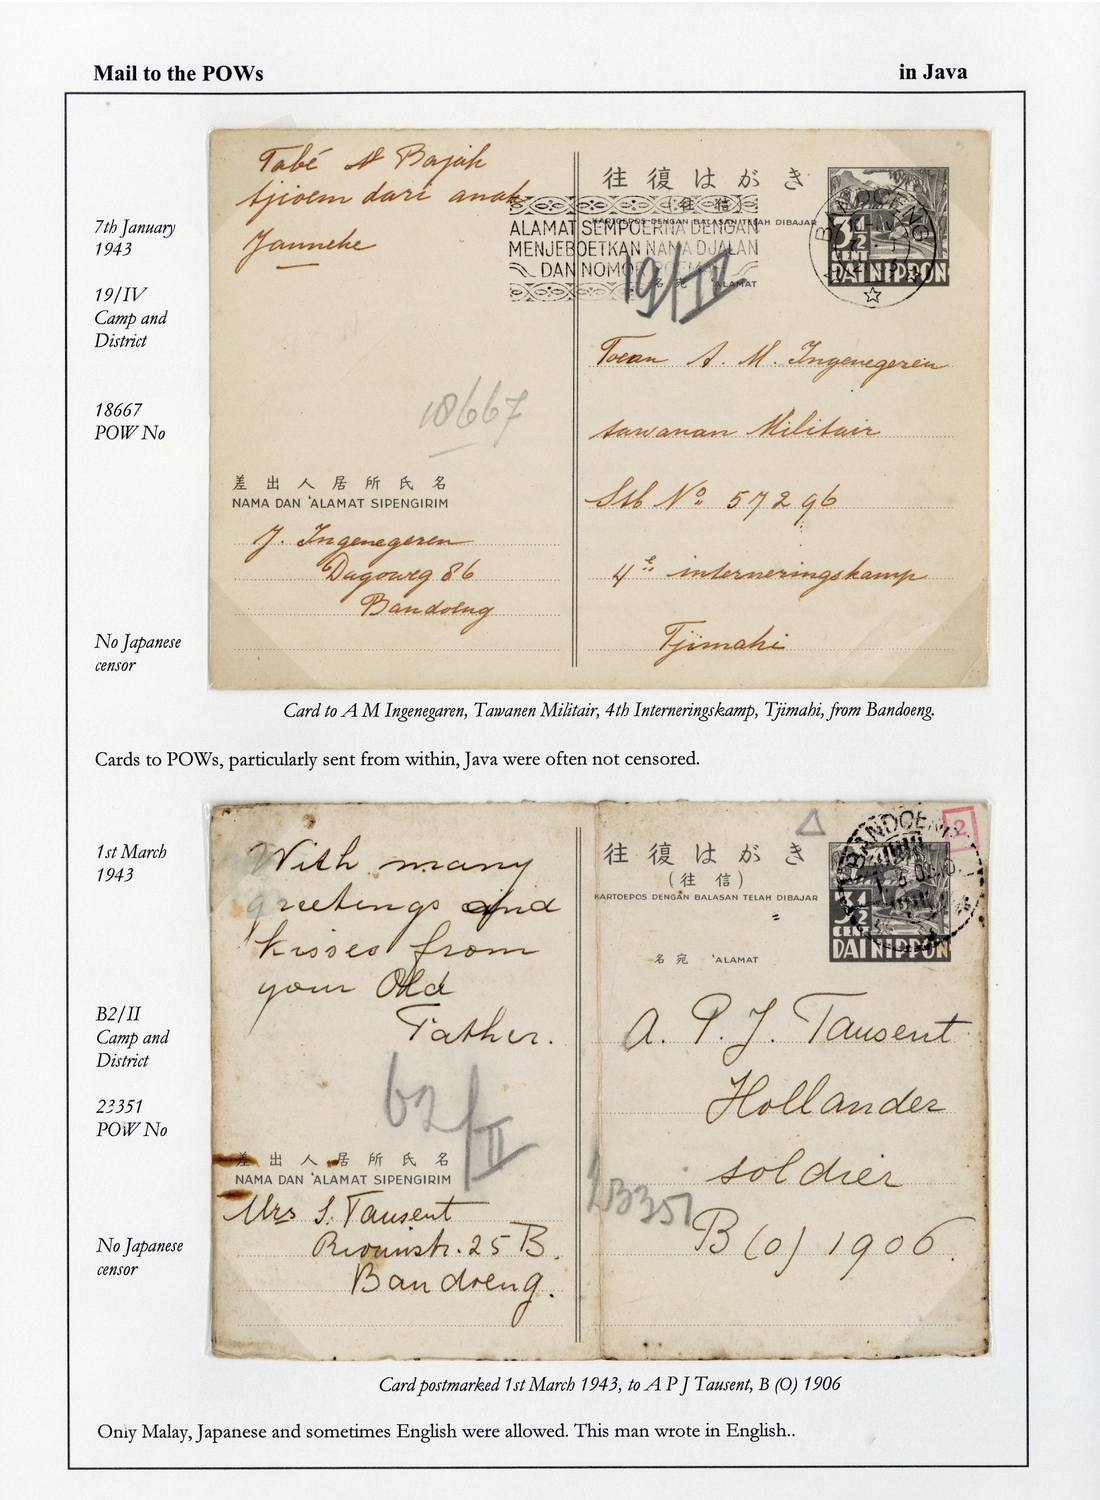 Mail to the POWs
in Java
7th January
1943
19/IV
Camp and
District
18667
POW No
No Japanese
censor
Tabé
tjioem dari anak
Janneke
18667
差出人居所氏名
NAMA DAN 'ALAMAT SIPENGIRIM
J. Ingenegeren
Dagoweg 86
Bandoeng
往復はがき
(往信)
KARTOEPOS DENGAN BALASAN TELAH DIBAJAR
ALAMAT SEMPOERNA DENGAN
MENJEBOETKAN NAMA DJALAN
DAN NOMOR
19/IV
名宛 'ALAMAT
BANDOENG
3½
CENT
DAI NIPPON
Toean A. M. Ingenegeren
tawanan Militair
Stb No 57296
4e interneringskamp
Tjimahi
Card to A M Ingenegaren, Tawanen Militair, 4th Interneringskamp, Tjimahi, from Bandoeng.
Cards to POWs, particularly sent from within, Java were often not censored.
1st March
1943
B2/II
Camp and
District
23351
POW No
No Japanese
censor
With many
greetings and
kisses from
your Old
Father.
b2/II
差出人居所氏名
NAMA DAN 'ALAMAT SIPENGIRIM
Mrs S. Tausent
Riouwstr. 25 B.
Bandoeng.
往復はがき
(往信)
KARTOEPOS DENGAN BALASAN TELAH DIBAJAR
名宛 'ALAMAT
BANDOENG
2
3½
CENT
DAI NIPPON
A. P. J. Tausent
Hollander
soldier
23351
B (o) 1906.
Card postmarked 1st March 1943, to A P J Tausent, B (O) 1906
Only Malay, Japanese and sometimes English were allowed. This man wrote in English..